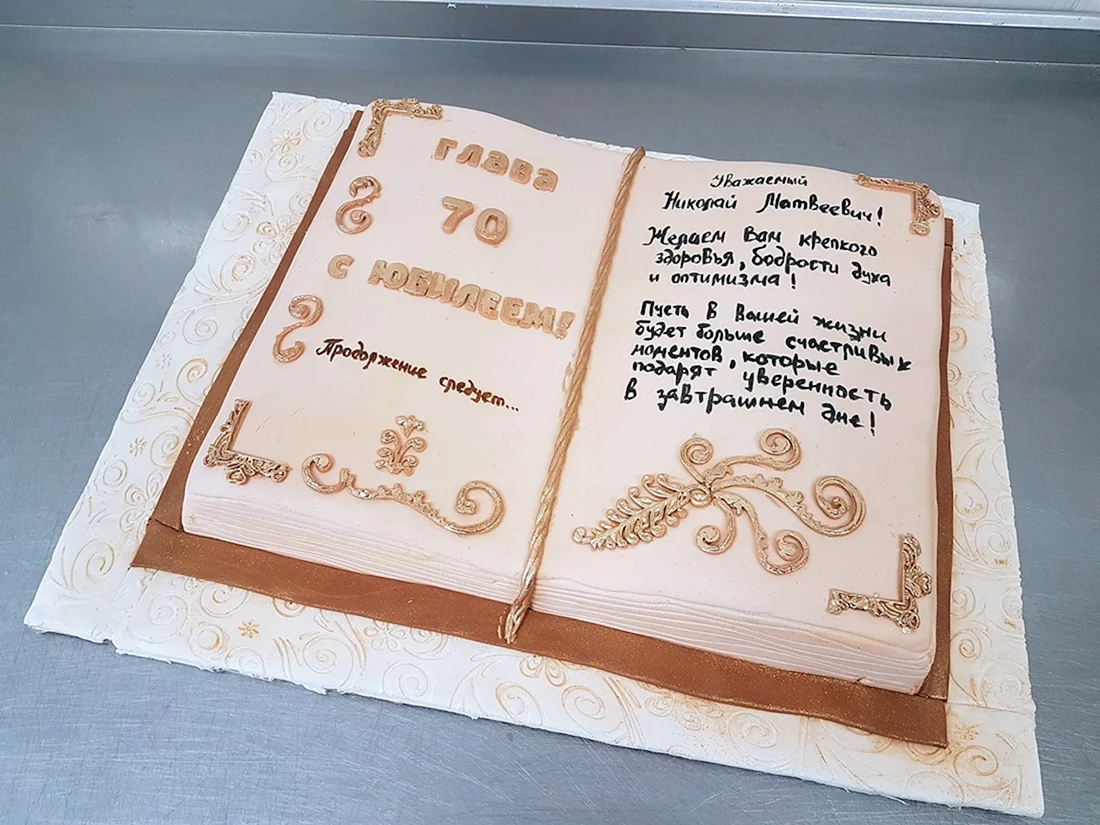 глава
70
с ЮБИЛЕЕМ!
Продолжение следует...
Уважаемый
Николай Матвеевич!
Желаем Вам крепкого
здоровья, бодрости духа
и оптимизма!
Пусть в Вашей жизни
будет больше счастливых
моментов, которые
подарят уверенность
в завтрашнем дне!